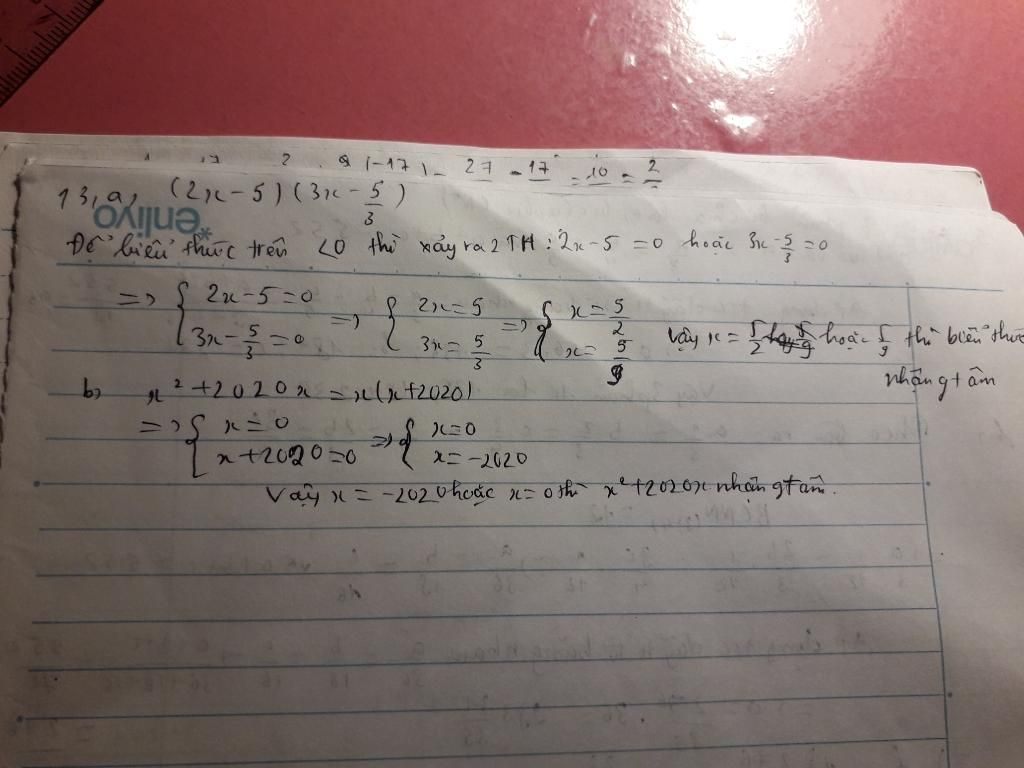 2 (-17) - 27 - 17 = 10 = 2
13, a, (2x - 5)(3x - 5/3)
enliyo
Để biểu thức trên <0 thì xảy ra 2 TH: 2x-5 =0 hoặc 3x-5/3 =0
=> { 2x-5=0 3x-5/3=0 => { 2x=5 3x=5/3 => { x=5/2 x=5/9 Vậy x=5/2 hoặc 5/9 thì biểu thức
nhận gt âm
b) x² +2020x =x(x+2020)
=> { x=0 x+2020=0 => { x=0 x=-2020
Vậy x = -2020 hoặc x=0 thì x²+2020x nhận gt âm.